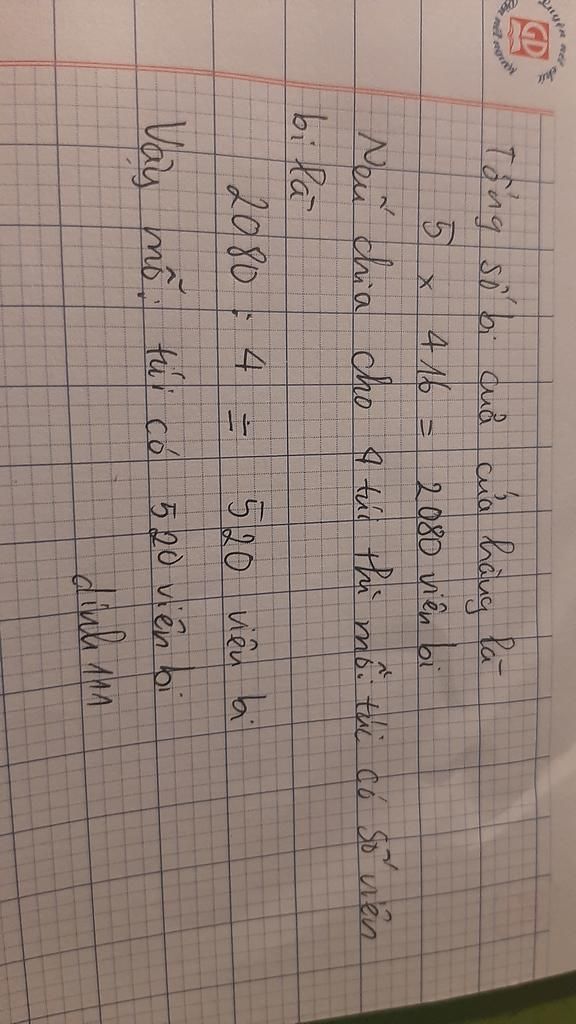 Tổng số bi của cửa hàng là
5 × 416 = 2080 viên bi
Nếu chia cho 4 túi thì mỗi túi có số viên
bi là
2080 : 4 = 520 viên bi
Vậy mỗi túi có 520 viên bi
GD